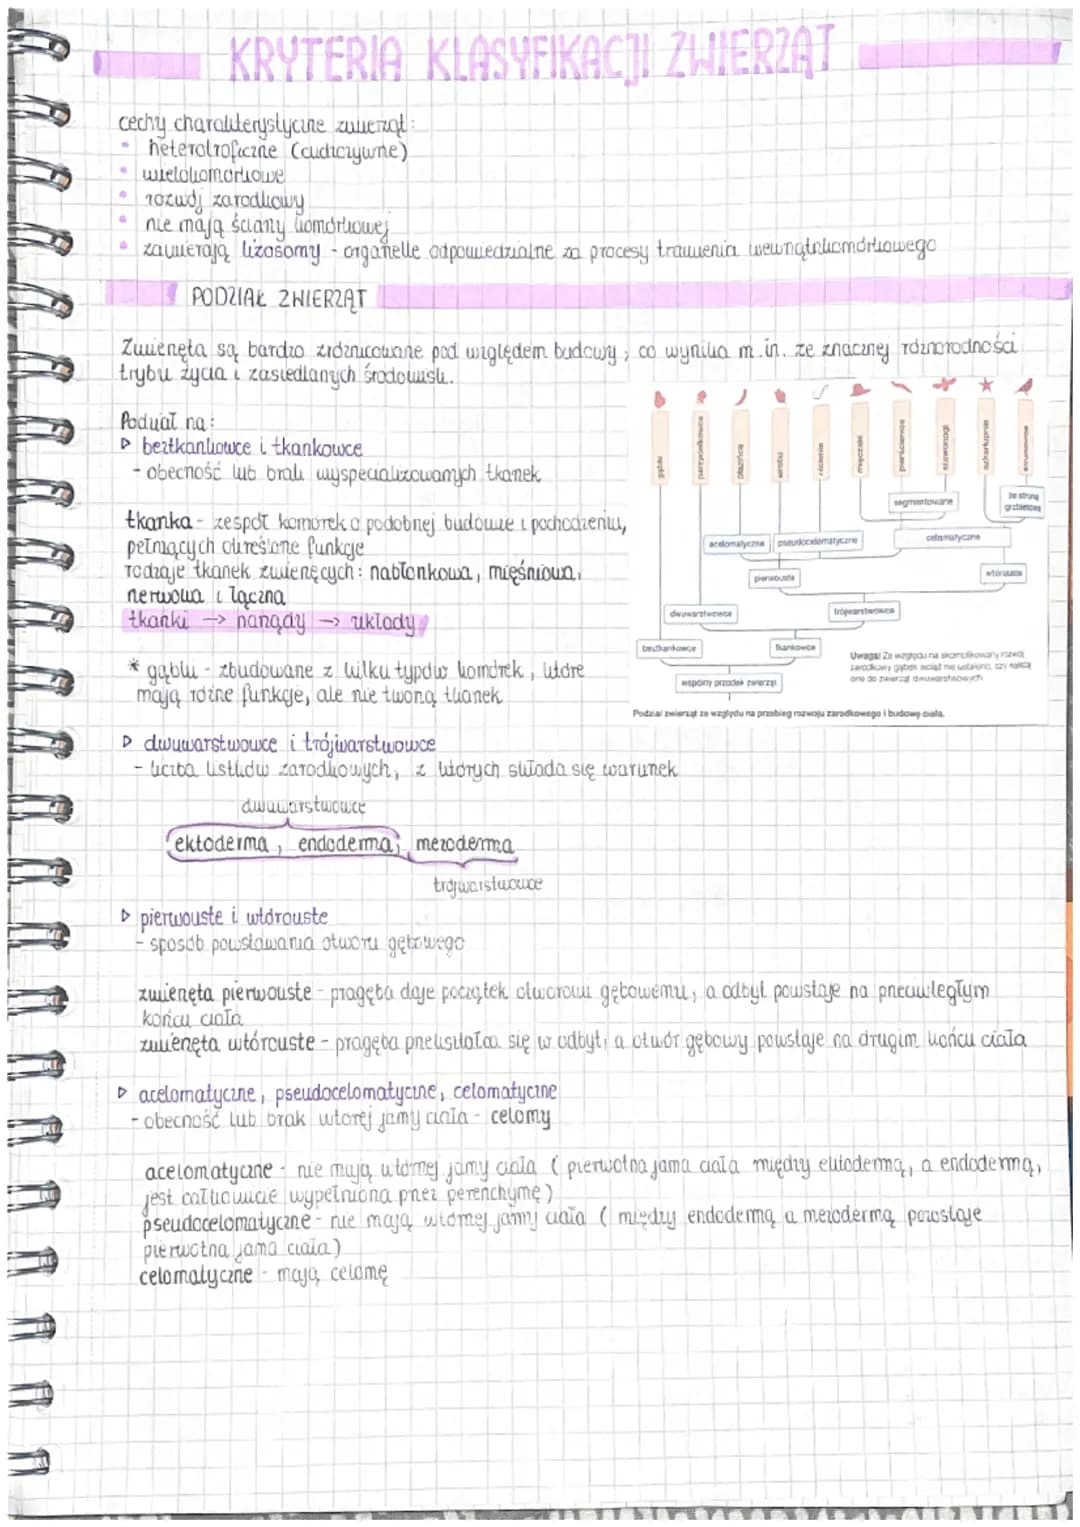 KRYTERIA KLASYFIKACJI ZWIERZĄT
cechy charakterystyczne zwierząt:
• heterotroficzne (cudzożywne)
• wielokomórkowe
• rozwój zarodkowy
• nie mają ściany komórkowej
• zawierają lizosomy - organelle odpowiedzialne za procesy trawienia wewnątrzkomórkowego
PODZIAŁ ZWIERZĄT
Zwierzęta są bardzo zróżnicowane pod względem budowy, co wynika m.in. ze znacznej różnorodności
trybu życia i zasiedlanych środowisk.
Podział na:
▷ beztkankowce i tkankowce
- obecność lub brak wyspecjalizowanych tkanek
tkanka - zespół komórek o podobnej budowie i pochodzeniu,
pełniących określone funkcje
rodzaje tkanek zwierzęcych: nabłonkowa, mięśniowa,
nerwowa i łączna
tkanki → narządy → układy
* gąbki - zbudowane z kilku typów komórek, które
mają różne funkcje, ale nie tworzą tkanek
gąbki
parzydełkowce
płazińce
wrotki
nicienie
mięczaki
pierścienice
stawonogi
szkarłupnie
strunowce
segmentowane
ze struną
grzbietową
acelomatyczne
pseudocelomatyczne
celomatyczne
pierwouste
wtórouste
dwuwarstwowce
trójwarstwowce
beztkankowce
tkankowce
wspólny przodek zwierząt
Uwaga! Ze względu na skomplikowany rozwój
zarodkowy gąbek wciąż nie ustalono, czy należą
one do zwierząt dwuwarstwowych
Podział zwierząt ze względu na przebieg rozwoju zarodkowego i budowę ciała.
▷ dwuwarstwowce i trójwarstwowce
- liczba listków zarodkowych, z których składa się warunek
dwuwarstwowce
ektoderma, endoderma, mezoderma
trójwarstwowce
▷ pierwouste i wtórouste
- sposób powstawania otworu gębowego
zwierzęta pierwouste - pragęba daje początek otworowi gębowemu, a odbyt powstaje na przeciwległym
końcu ciała
zwierzęta wtórouste - pragęba przekształca się w odbyt, a otwór gębowy powstaje na drugim końcu ciała
▷ acelomatyczne, pseudocelomatyczne, celomatyczne
- obecność lub brak wtórej jamy ciała - celomy
acelomatyczne - nie mają wtórnej jamy ciała (pierwotna jama ciała między ektodermą, a endodermą,
jest całkowicie wypełniona przez perenchymę)
pseudocelomatyczne - nie mają wtórnej jamy ciała (między endodermą a mezodermą pozostaje
pierwotna jama ciała)
celomatyczne - mają celomę